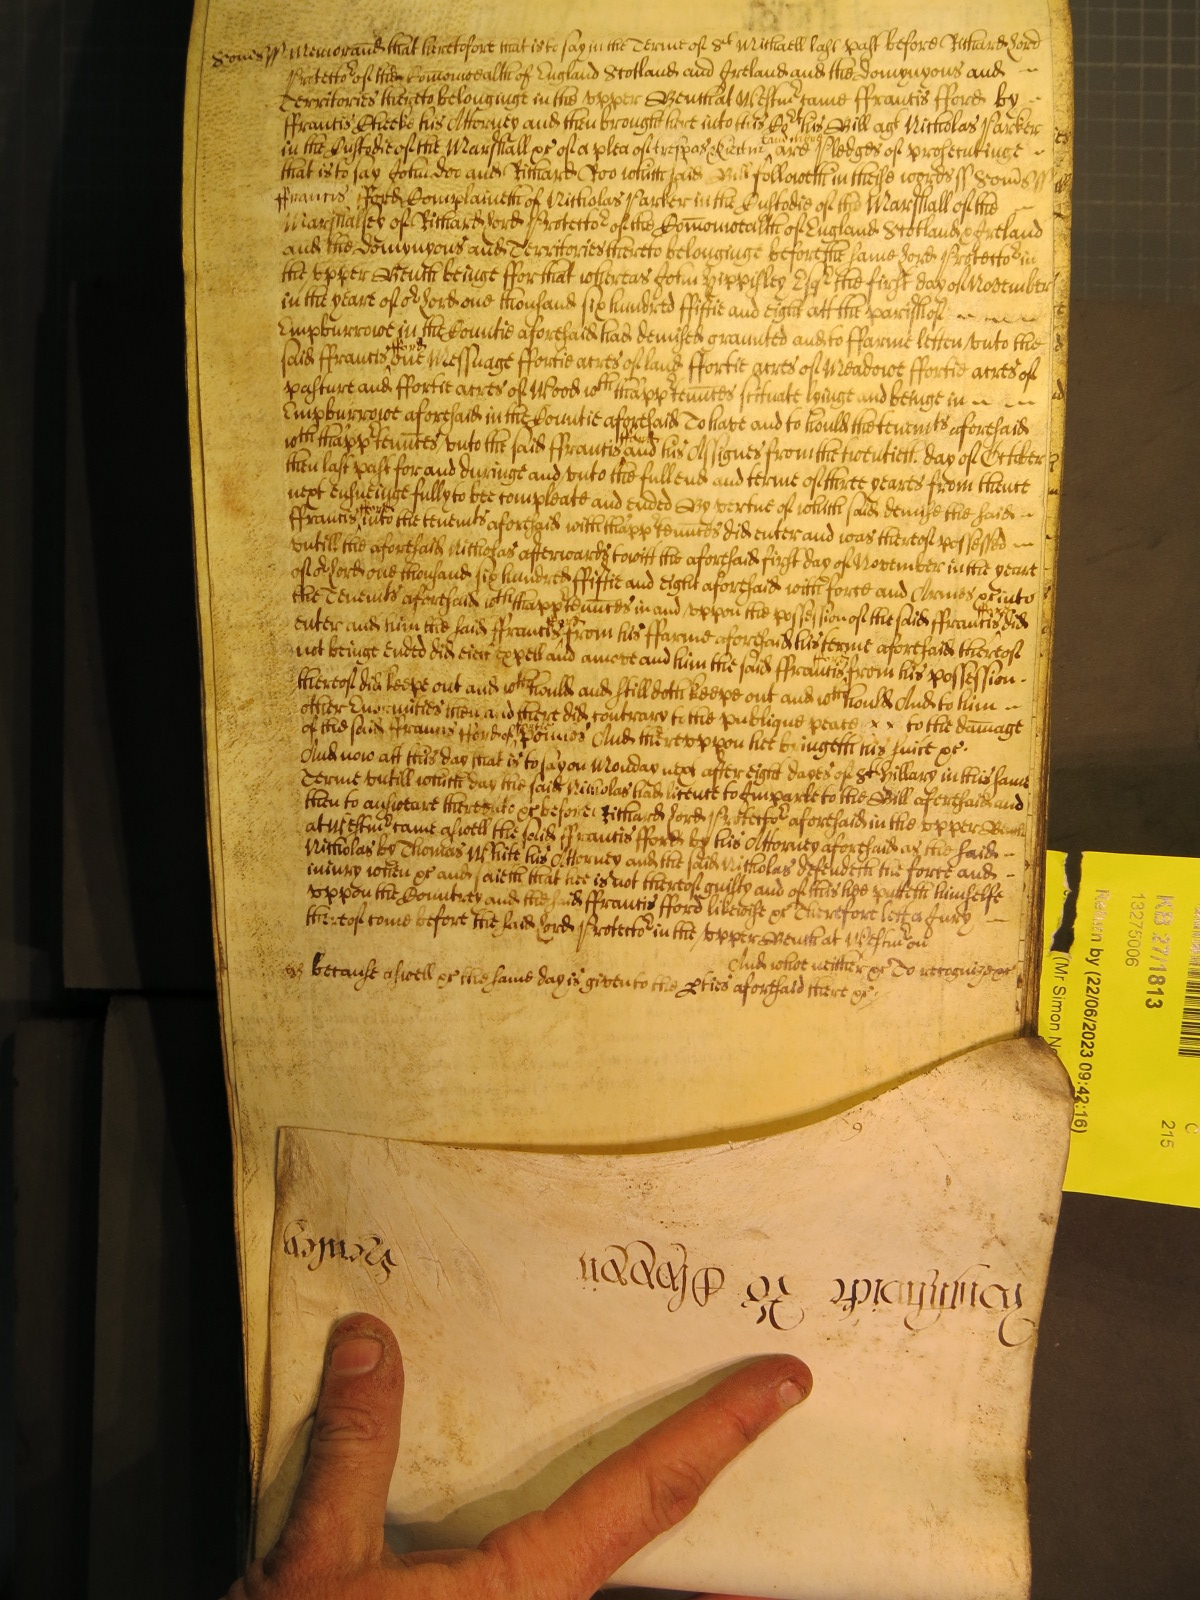 Somsß Memorand that heretofore that is to say in the Terme of St Michaell last past before Richard Lord
Protector of the Comonwealth of England Scotland and Ireland and the domynyons and
Territories thereto belonginge in the upper Bench at Westmr came ffrancis fford by
ffrancis Cheeke his Attorney and then brought here into this Cort his Bill agt Nicholas Parker
in the Custodie of the Marshall &c of a plea of trespas & eiectmt and there are Pledges of prosecutinge
that is to say John Doe and Richard Roo which said Bill followeth in theise words ß Somsß
ffrancis fford Complaineth of Nicholas Parker in the Custodie of the Marshall of the
Marshalsey of Richard Lord Protector of the Comonwealth of England Scotland & Ireland
and the domynyons and Territories thereto belonginge before the same Lord Protector in
the upper Bench beinge ffor that whereas John Hippisley Esqr the first day of November
in the yeare of or Lord one thousand six hundred ffiftie and eight att the parish of
Empburrowe in the Countie aforesaid had demised graunted and to ffarme letten unto the
said ffrancis fford one Messuage ffortie acres of land ffortie acres of Meadowe ffortie acres of
pasture and ffortie acres of Wood wth thapptennces scituate lyinge and beinge in
Empburrowe aforesaid in the Countie aforesaid To have and to hould the tenemts aforesaid
wth thapptennces unto the said ffrancis fford and his Assignes from the twentieth day of October
then last past for and duringe and unto the full end and terme of three yeares from thence
next ensueinge fully to bee compleate and ended By vertue of which said demise the said
ffrancis fford into the tenemts aforesaid with thapptennces did enter and was thereof possessed
untill the aforesaid Nicholas afterwards towitt the aforesaid first day of November in the yeare
of or Lord one thousand six hundred ffiftie and eight aforesaid with force and Armes &c into
the Tenemts aforesaid wth thapptennces in and uppon the possession of the said ffrancis fford did
enter and him the said ffrancis fford from his ffarme aforesaid his terme aforesaid thereof
not beinge ended did eiect expell and amove and him the said ffrancis fford from his possession
thereof did keepe out and wthhould and still doth keepe out and wthhould And to him
other Enormities then and there did contrary to the publique peace x x to the damage
of the said ffrancis fford of Pounds And thereuppon hee bringeth his suite &c
And now att this day that is to say on Monday next after eight dayes of St Hillary in this same
Terme untill which day the said Nicholas had licence to Imparle to the Bill aforesaid and
then to answeare thereunto &c before Richard Lord Protector aforesaid in the upper Bench
at Westmr came aswell the said ffrancis fford by his Attorney aforesaid as the said
Nicholas by Thomas White his Attorney and the said Nicholas defendeth the force and
iniury when &c and saieth that hee is not thereof guilty and of this hee putteth himselfe
uppon the Countrey and the said ffrancis fford likewise &c Therefore lett a Jury
thereof come before the said Lord Protector in the upper Bench at Westmr on
And whoe neither &c To recognize &c
because aswell &c the same day is given to the pties aforesaid there &c
9
KB 27/1813
13275006
215
Return by (22/06/2023 09:42:16)
(Mr Simon